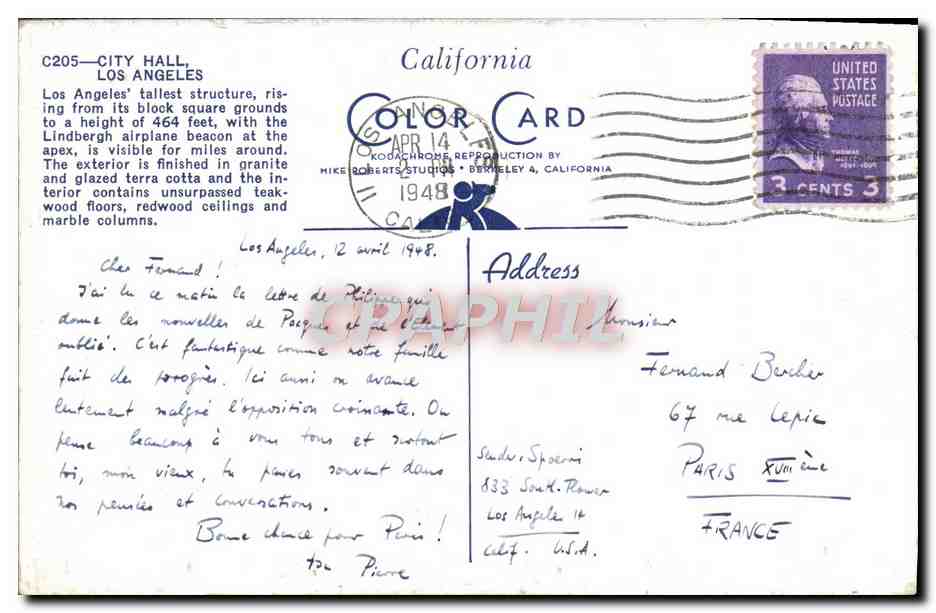 C205—CITY HALL,
LOS ANGELES
Los Angeles' tallest structure, ris-
ing from its block square grounds
to a height of 464 feet, with the
Lindbergh airplane beacon at the
apex, is visible for miles around.
The exterior is finished in granite
and glazed terra cotta and the in-
terior contains unsurpassed teak-
wood floors, redwood ceilings and
marble columns.
California
COLOR CARD
KODACHROME REPRODUCTION BY
MIKE ROBERTS STUDIOS • BERKELEY 4, CALIFORNIA
LOS ANGEL
APR 14
1948
CAL
UNITED
STATES
POSTAGE
THOMAS
3 CENTS 3
Los Angeles, 12 avril 1948.
Cher Fernand !
J'ai lu ce matin la lettre de Philippe qui
donne les nouvelles de Pacques et de
oublié. C'est fantastique comme notre famille
fait des progrès. Ici aussi on avance
lentement malgré l'opposition croissante. On
pense beaucoup à vous tous et surtout
toi, mon vieux, tu passes souvent dans
nos pensées et conversations.
Bonne chance pour Paris !
ton Pierre
Address
Monsieur
Fernand Bercher
67 rue Lepic
PARIS XVIII ème
FRANCE
Sender: Spoerri
833 South Flower
Los Angeles 14
Calif. U.S.A.
CPARHIL